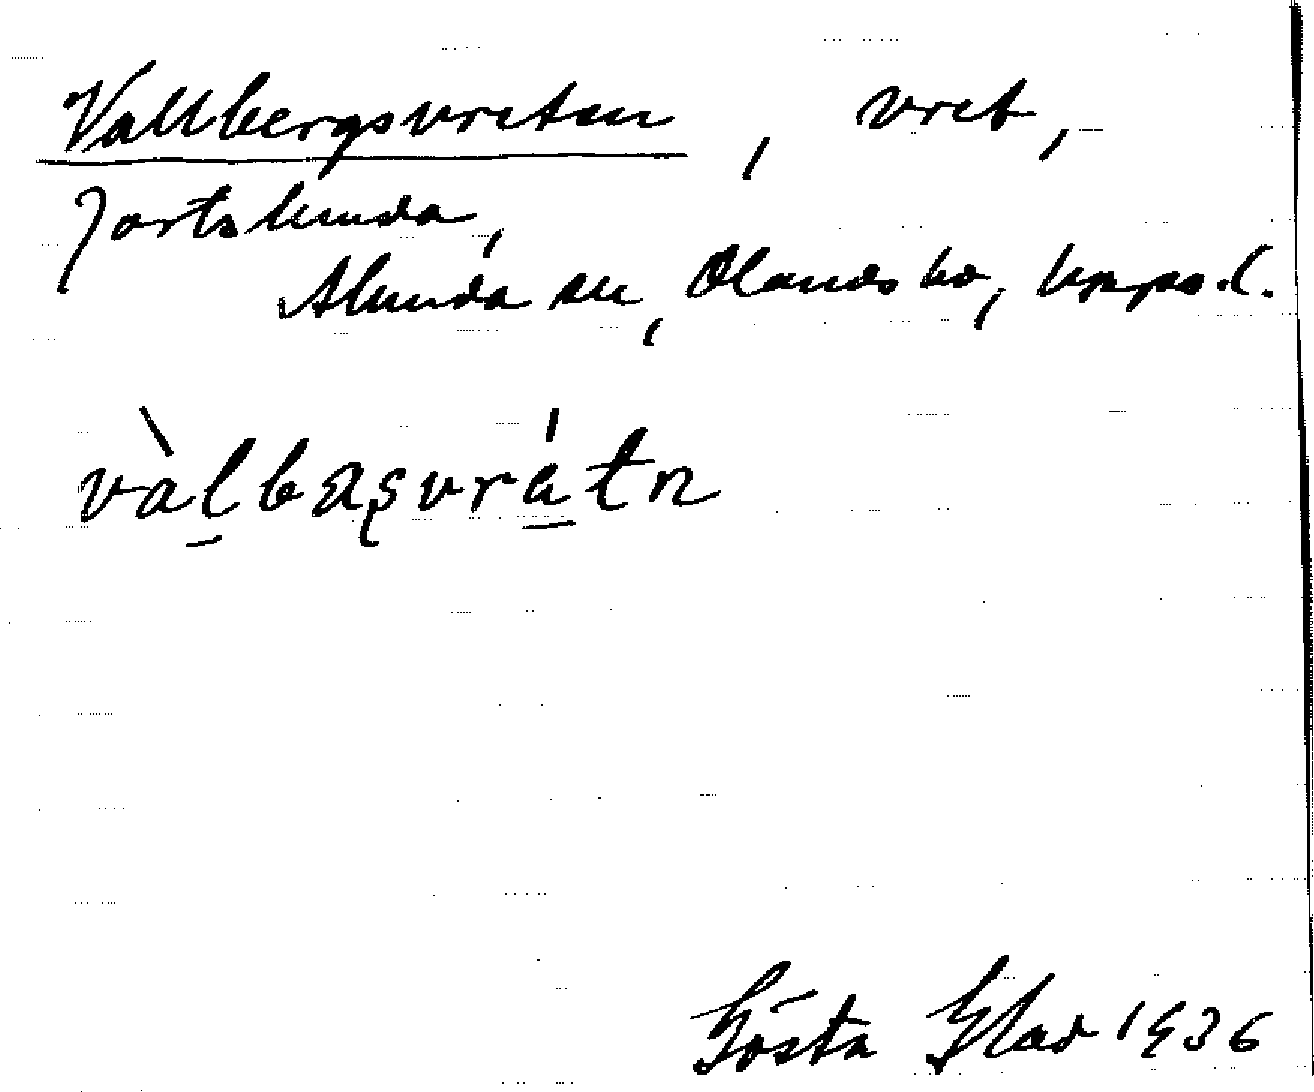 Vallbergsvreten, vret,
Jortslunda,
Alunda sn, Olands hd, Upps. l.
vàḻbaşvrá̱tn
Gösta Glad 1936